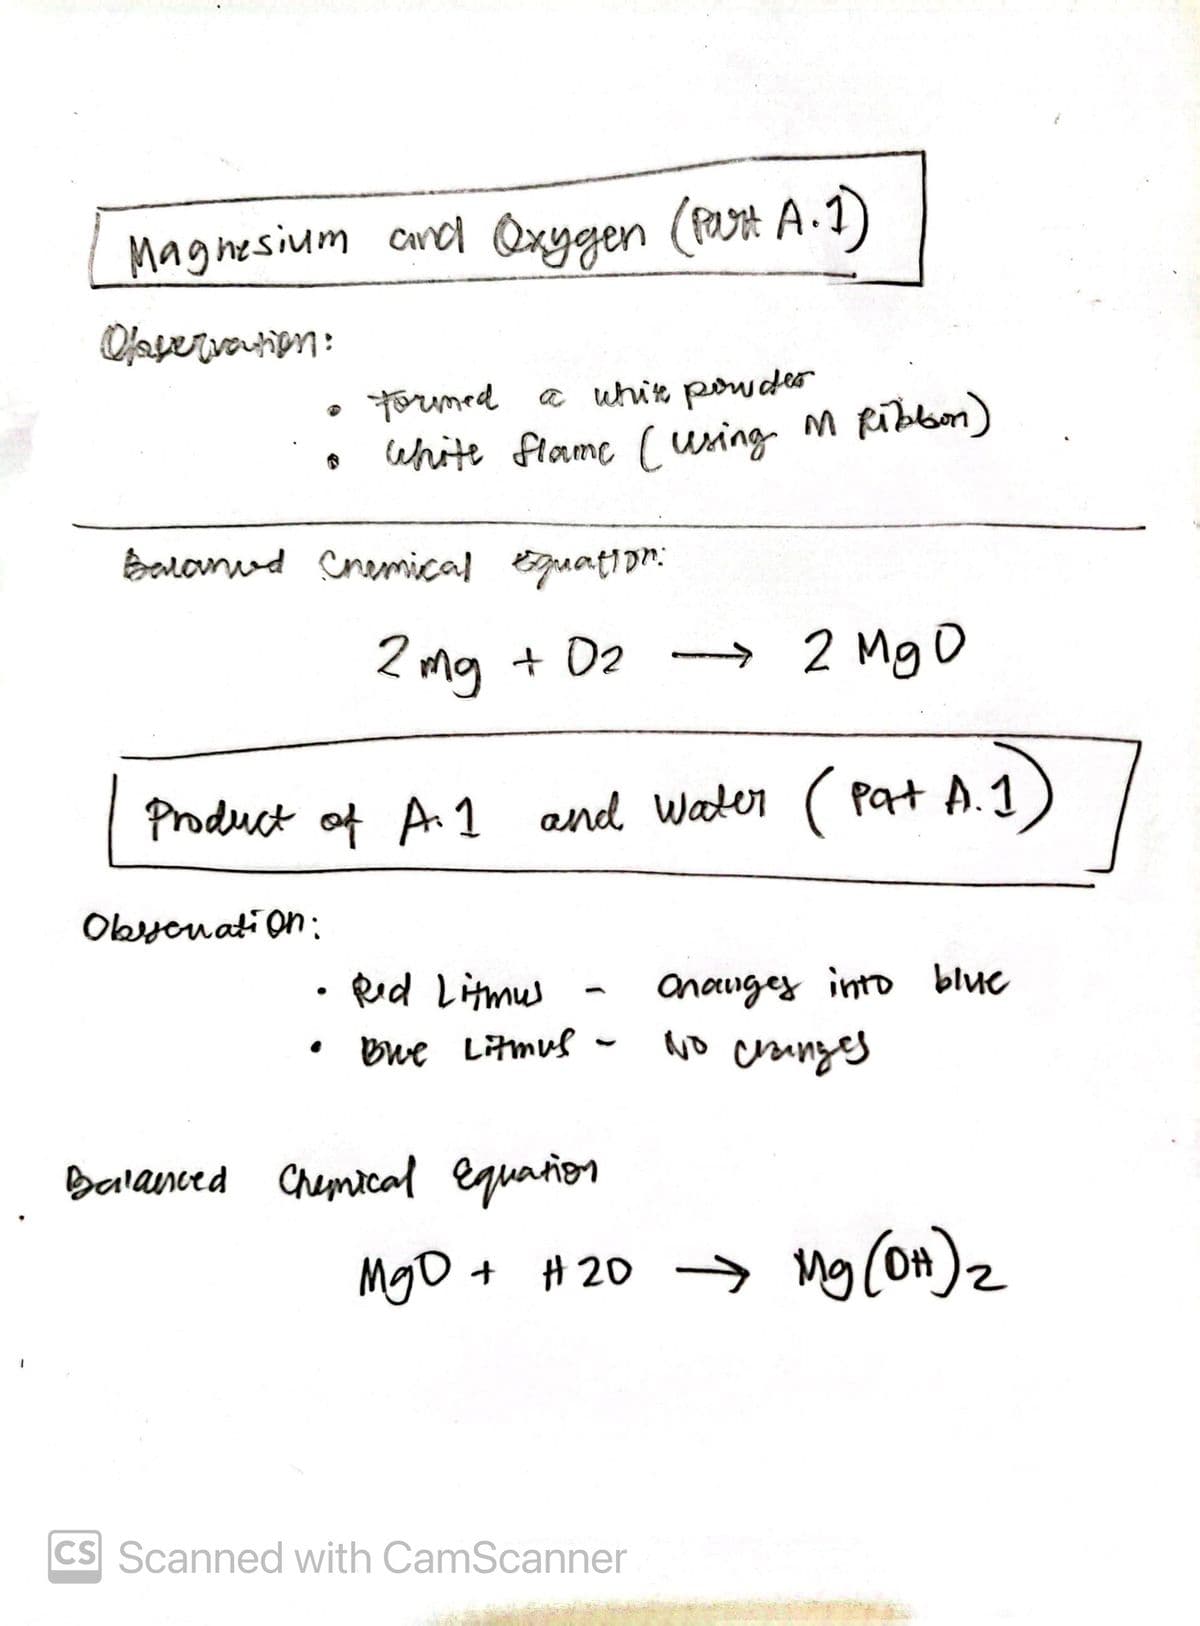 Magnesium and Oxygen (Part A.1)
Observation:
• Formed a white powder
• White flame (using M Ribbon)
Balanced Chemical Equation:
2 mg + O2 → 2 MgO
Product of A.1 and Water (Pat A.1)
Observation:
• Red Litmus - Changes into blue
• Blue Litmus - No changes
Balanced Chemical Equation
MgO + H2O → Mg(OH)2
CS Scanned with CamScanner